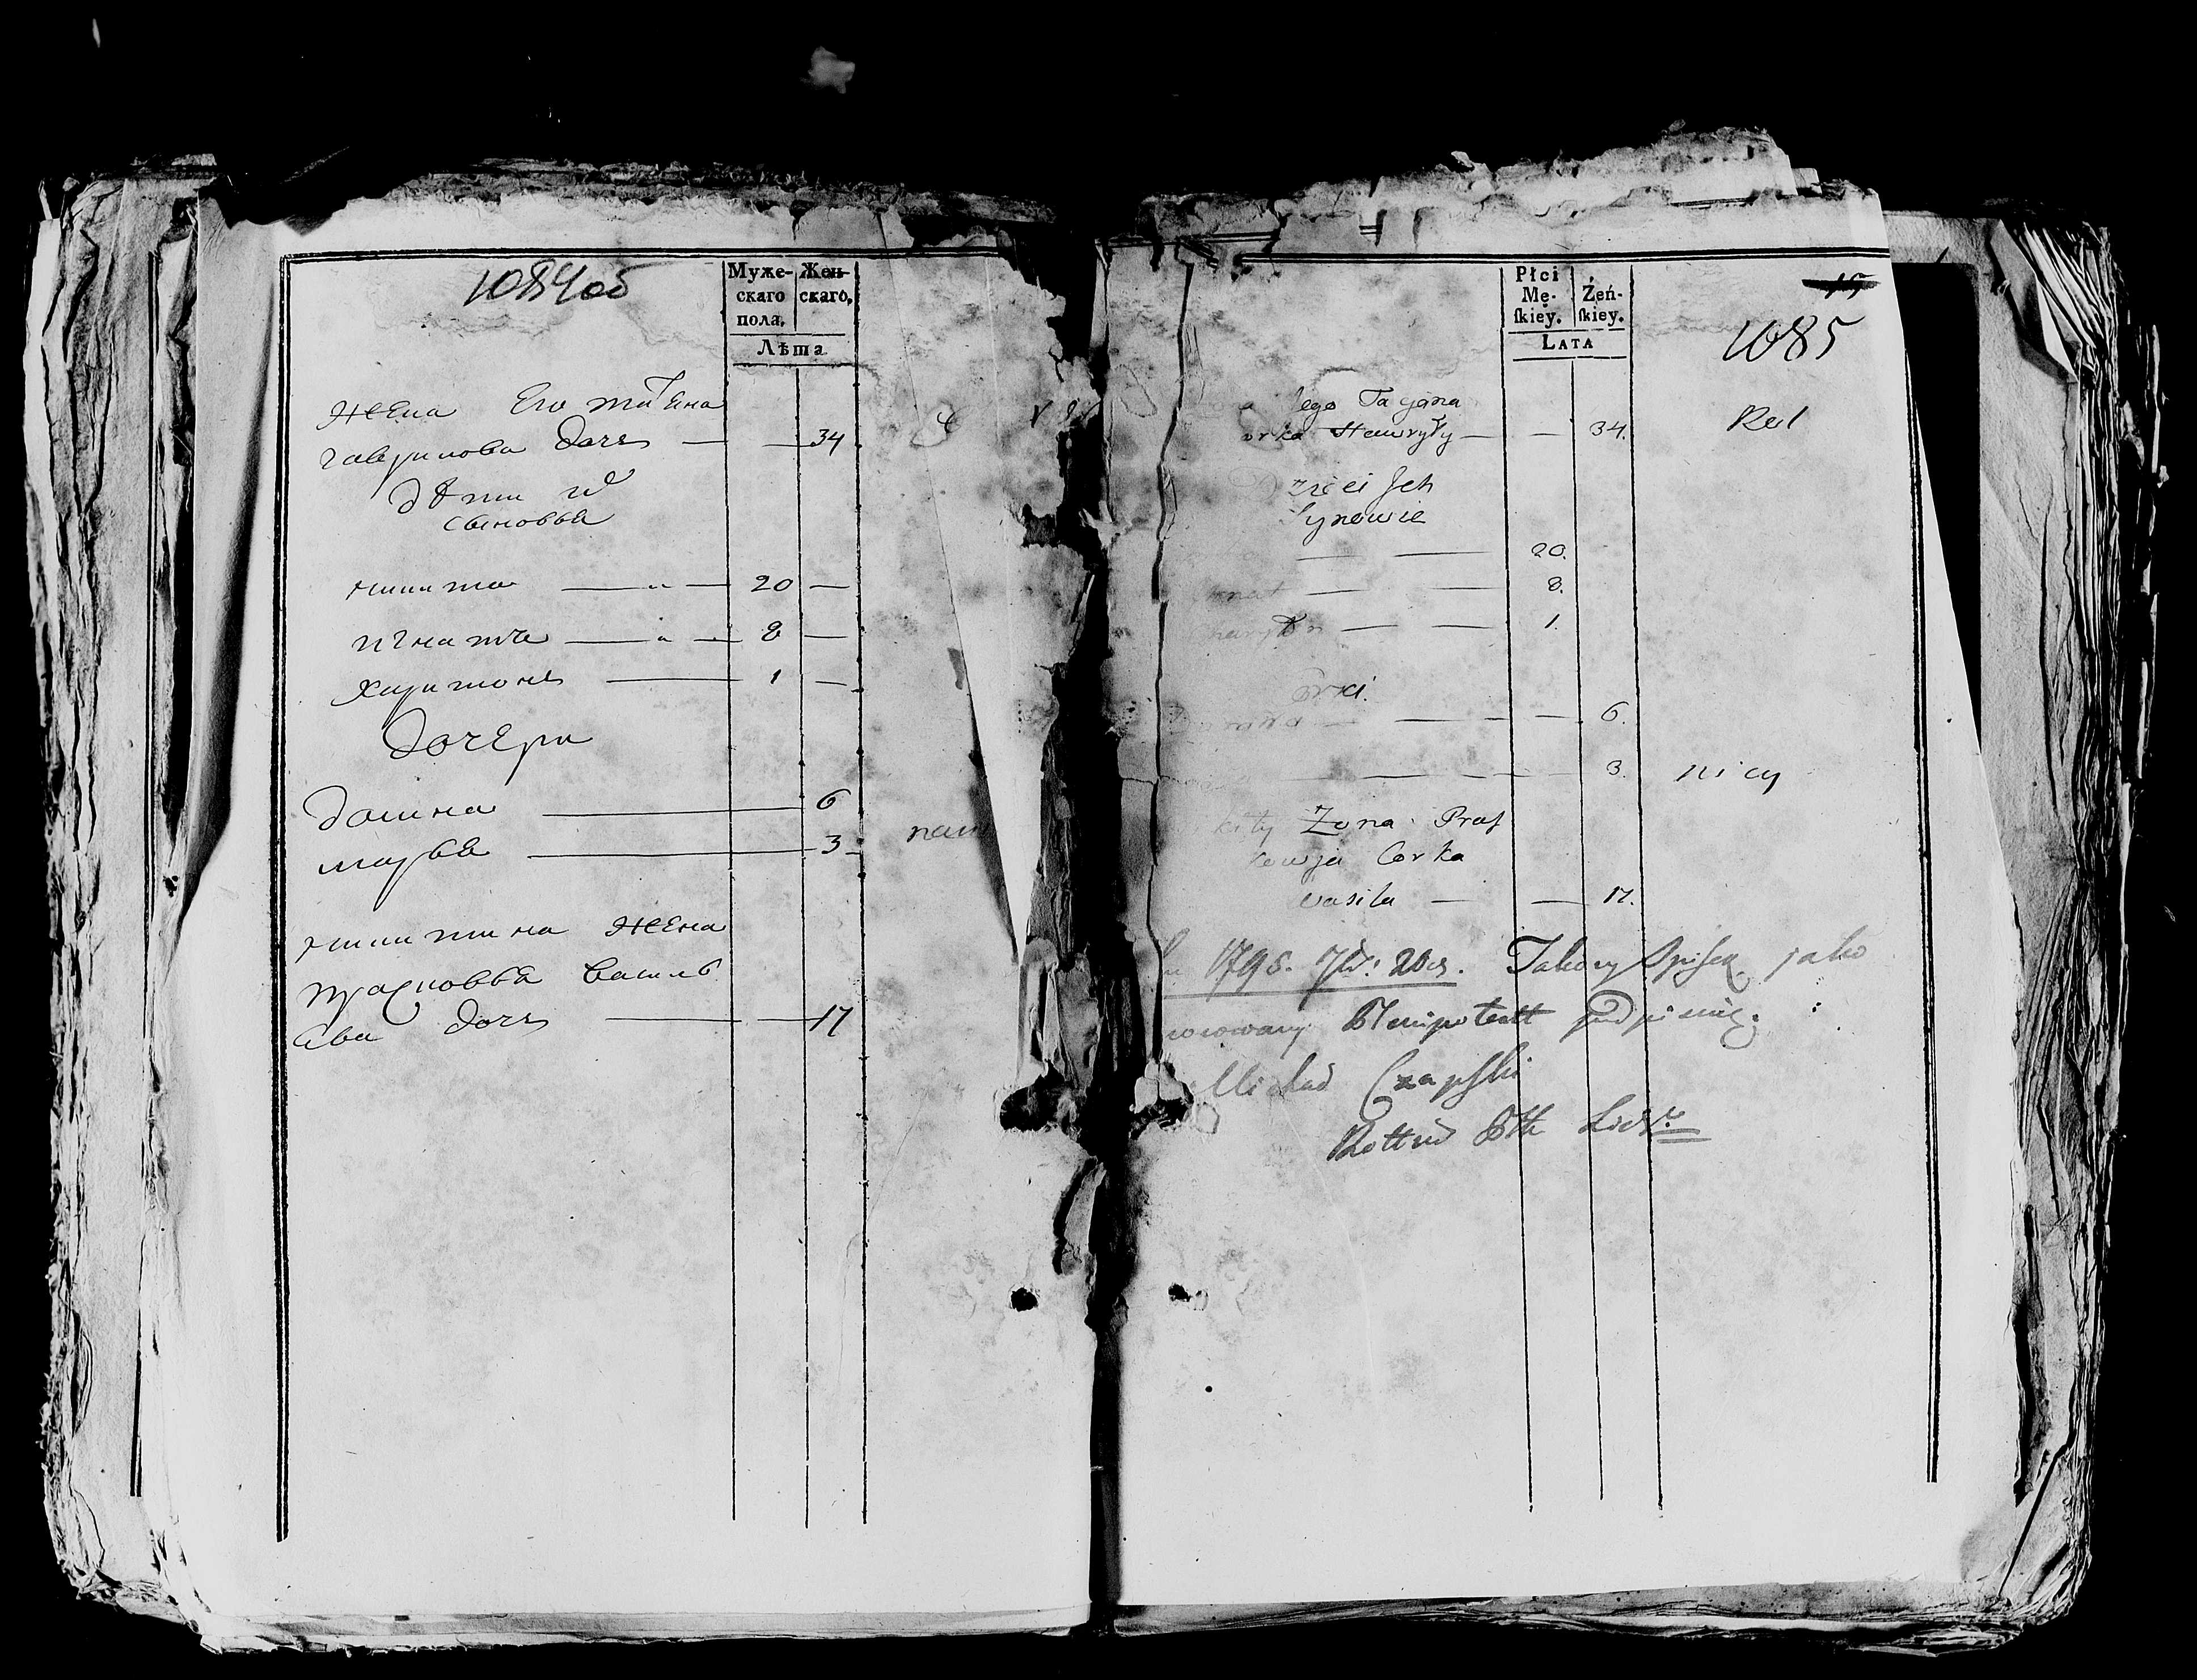 1084об
Муже-
скаго
пола,
Жен-
скаго,
Лѣта
жена Его татЕна
гаврилова дочь — — 34
дѣти их
сыновья
никита — " — 20 —
игнатъ — " — 8 —
харитонъ — 1 —
дочери
домна — 6
марья — 3
никитина жена
прасковья василь
ева дочь — — 17
Płci
Mę-
ſkiey.
Żeń-
ſkiey.
LATA
15
1085
Jego Tacyana
orka Hawryły — — 34.
Dzieci Jch
Synowie
— — 20.
gnat — — 8.
haryton — — 1.
orki.
— — — 6.
— — — 3.
kity Zona Praſ
kowja Corka
wasila — — 17.
1795. 20 Takowy Spisek jako
Plenipotent podpisuię.
Michał Czapſki